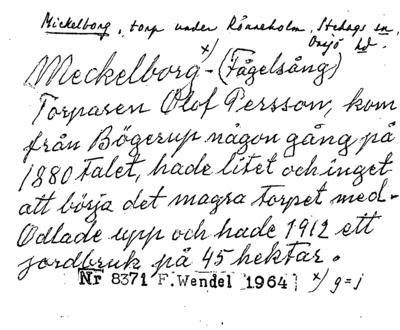 Mickelborg, torp under Rönneholm, Stehags sn,
Onsjö hd.
x)
Meckelborg - (Fågelsång)
Torparen Olof Persson, kom
från Bögerup någon gång på
1880 talet, hade litet och inget
att börja det magra torpet med -
Odlade upp och hade 1912 ett
jordbruk på 45 hektar.
Nr 8371 F. Wendel 1964 x) g=j